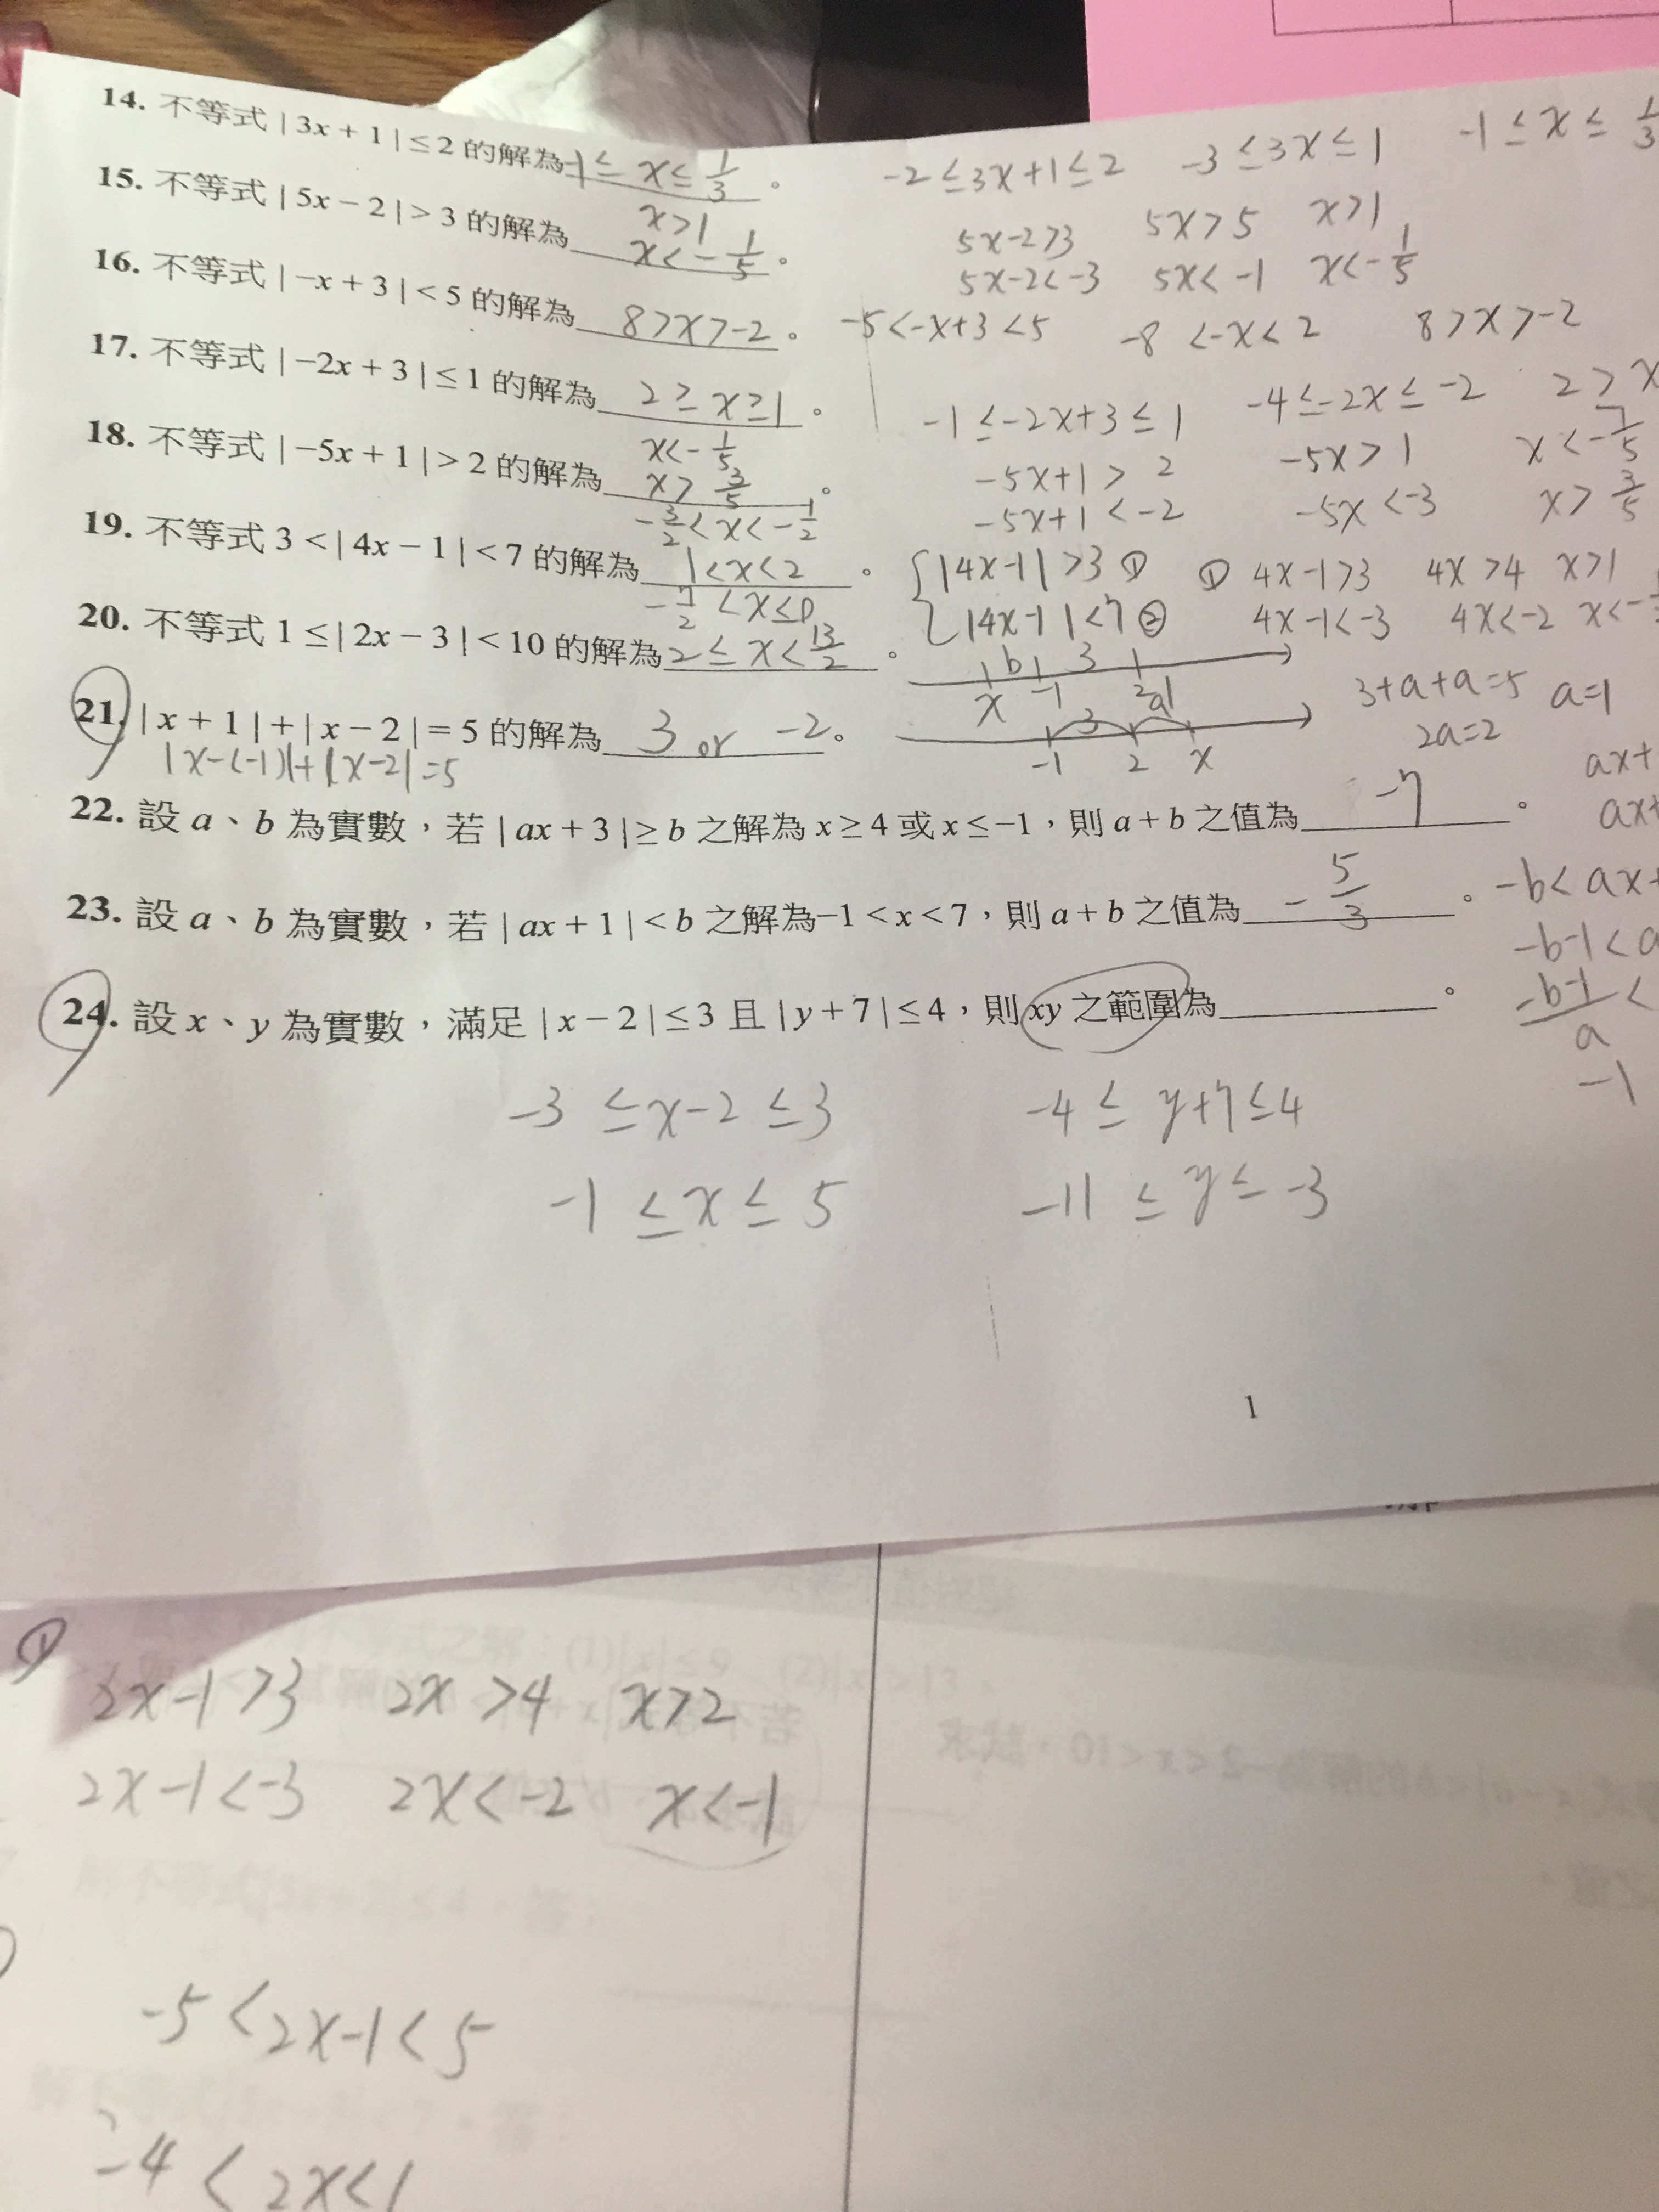 14. 不等式 | 3x + 1 | ≤ 2 的解為 -1 ≤ x ≤ 1/3 。 -2 ≤ 3x+1 ≤ 2 -3 ≤ 3x ≤ 1 -1 ≤ x ≤ 1/3
15. 不等式 | 5x − 2 | > 3 的解為 x>1 x< -1/5 。 5x-2>3 5x>5 x>1
5x-2<-3 5x<-1 x<-1/5
16. 不等式 | −x + 3 | < 5 的解為 8>x>-2 。 -5<-x+3<5 -8<-x<2 8>x>-2
17. 不等式 | −2x + 3 | ≤ 1 的解為 2 ≥ x ≥ 1 。 -1 ≤ -2x+3 ≤ 1 -4 ≤ -2x ≤ -2 2 ≥ x
18. 不等式 | −5x + 1 | > 2 的解為 x<-1/5 x>3/5 。 -5x+1 > 2 -5x>1 x<-1/5
-5x+1 < -2 -5x<-3 x>3/5
19. 不等式 3 < | 4x − 1 | < 7 的解為 -3/2<x<-1/2 1<x<2 。 |4x-1|>3 ① ① 4x-1>3 4x>4 x>1
|4x-1|<7 ② 4x-1<-3 4x<-2 x<-
20. 不等式 1 ≤ | 2x − 3 | < 10 的解為 -7/2<x≤0 2≤x<13/2 。
b 3
x -1 2
21. | x + 1 | + | x − 2 | = 5 的解為 3 or -2 。 3 a 3+a+a=5 a=1
|x-(-1)|+|x-2|=5 -1 2 x 2a=2
22. 設 a、b 為實數，若 | ax + 3 | ≥ b 之解為 x ≥ 4 或 x ≤ −1，則 a + b 之值為 -7 。 ax+
ax+
23. 設 a、b 為實數，若 | ax + 1 | < b 之解為 −1 < x < 7，則 a + b 之值為 -5/3 。 -b< ax+
-b-1<a
24. 設 x、y 為實數，滿足 | x − 2 | ≤ 3 且 | y + 7 | ≤ 4，則 xy 之範圍為 。 -b-1/a <
-1
-3 ≤ x-2 ≤ 3 -4 ≤ y+7 ≤ 4
-1 ≤ x ≤ 5 -11 ≤ y ≤ -3
1
①
2x-1>3 2x>4 x>2
2x-1<-3 2x<-2 x<-1
-5<2x-1<5
-4<2x<1